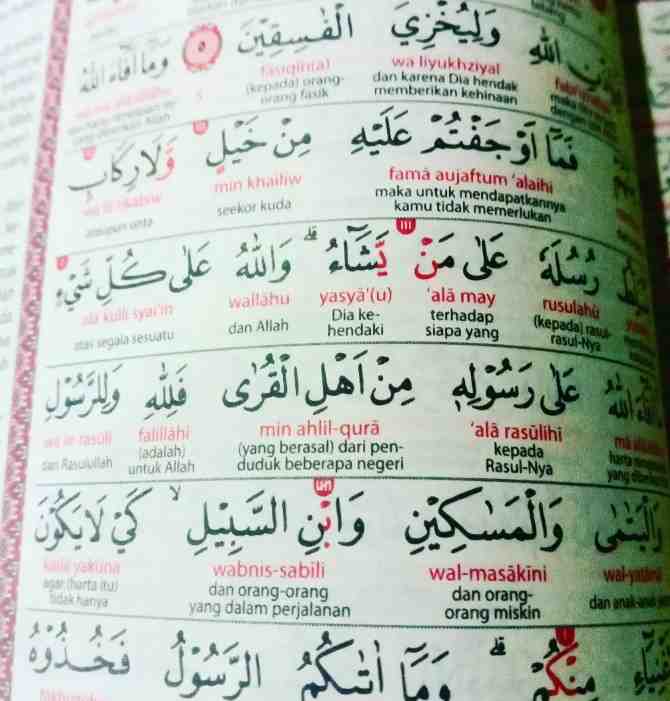 اللهِ وَلِيُخْزِيَ الْفٰسِقِيْنَ ٥ وَمَآ اَفَاۤءَ اللهُ
wa liyukhziyal fāsiqīn(a)
dan karena Dia hendak (kepada) orang-
memberikan kehinaan orang fasik
فَمَآ اَوْجَفْتُمْ عَلَيْهِ مِنْ خَيْلٍ وَّلَا رِكَابٍ
famā aujaftum ‘alaihi min khailiw
maka untuk mendapatkannya seekor kuda ataupun unta
kamu tidak memerlukan
رُسُلَهٗ عَلٰى مَنْ يَّشَاۤءُ ۗ وَاللهُ عَلٰى كُلِّ شَيْءٍ
rusulahū ‘alā may yasyā'(u) wallāhu ‘alā kulli syai'in
(kepada) rasul- terhadap Dia ke- dan Allah atas segala sesuatu
rasul-Nya siapa yang hendaki
اللهُ عَلٰى رَسُوْلِهٖ مِنْ اَهْلِ الْقُرٰى فَلِلّٰهِ وَلِلرَّسُوْلِ
‘alā rasūlihī min ahlil-qurā falillāhi wa lir-rasūli
kepada (yang berasal) dari pen- (adalah) dan Rasulullah
Rasul-Nya duduk beberapa negeri untuk Allah
وَالْيَتٰمٰى وَالْمَسٰكِيْنِ وَابْنِ السَّبِيْلِ ۙ كَيْ لَا يَكُوْنَ
wal-yatāmā wal-masākīni wabnis-sabīli kailā yakūna
dan anak-anak dan orang- dan orang-orang agar (harta itu)
orang miskin yang dalam perjalanan tidak hanya
مِنْكُمْ ۗ وَمَآ اٰتٰىكُمُ الرَّسُوْلُ فَخُذُوْهُ